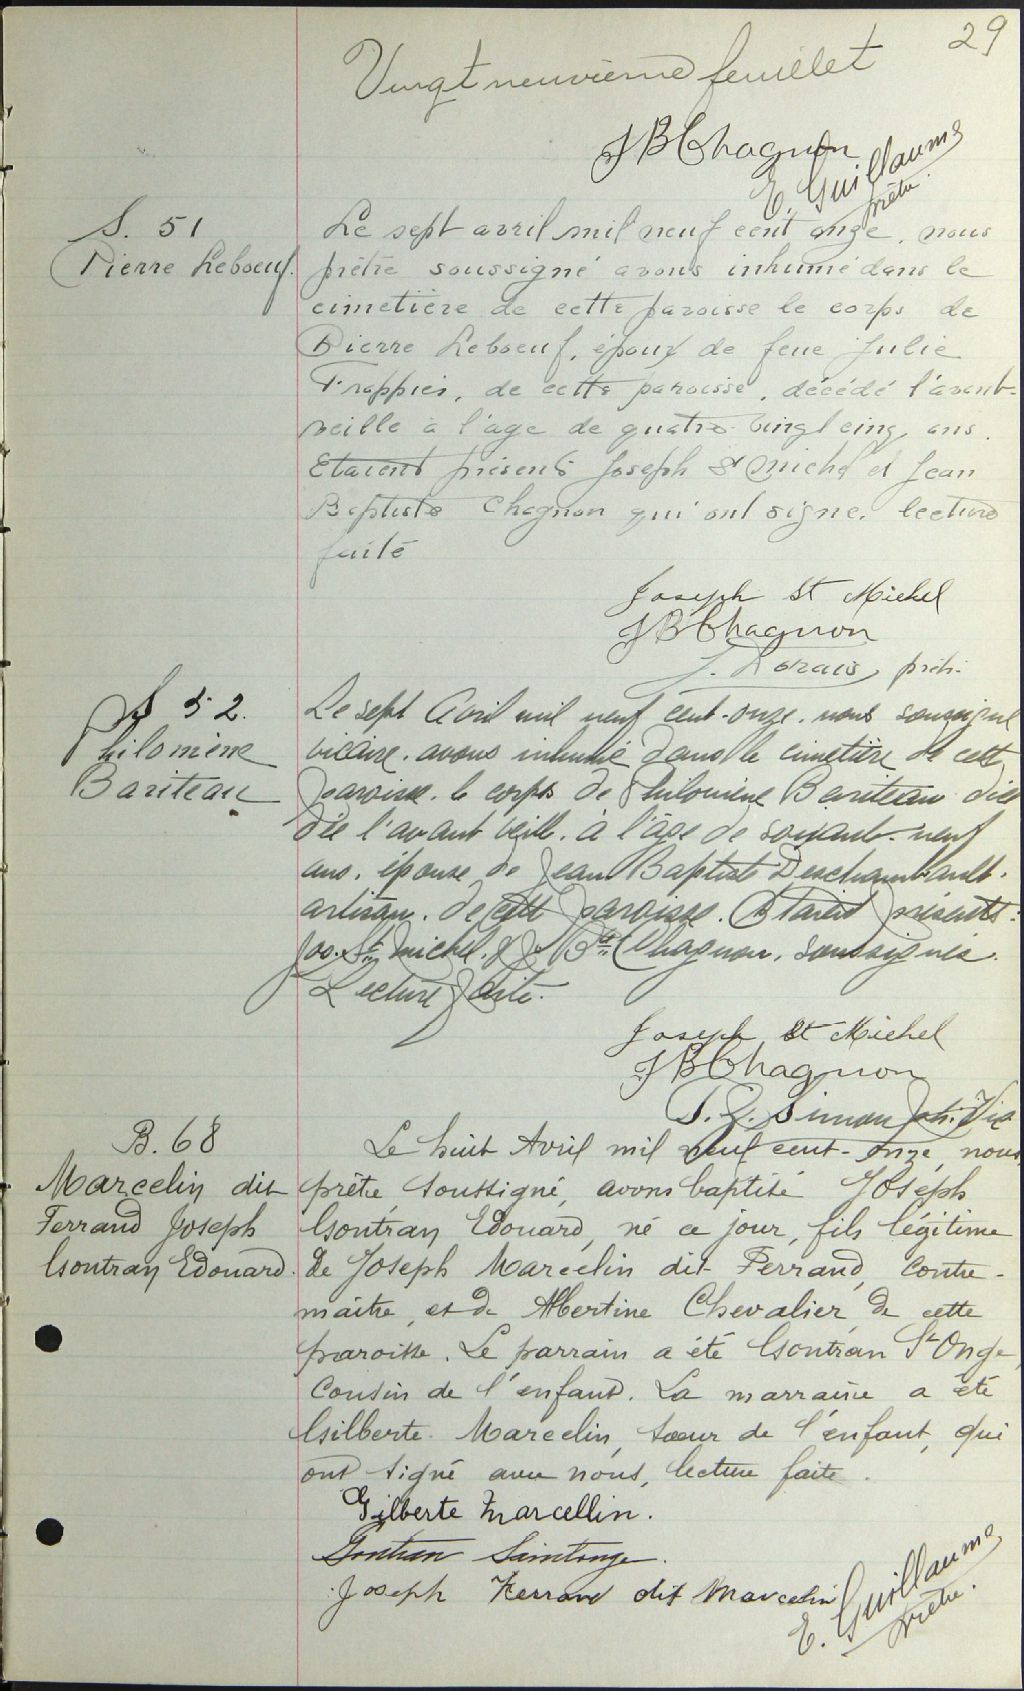 29
Vingt neuvième feuillet
JBChagnon
E. Guillaume
prêtre.
S. 51
Pierre Leboeuf.
Le sept avril mil neuf cent onze, nous
prêtre soussigné avons inhumé dans le
cimetière de cette paroisse le corps de
Pierre Leboeuf, époux de feue Julie
Frappier, de cette paroisse, décédé l'avant-
veille à l'age de quatre-vingt cinq ans.
Etaient présents Joseph St Michel et Jean
Baptiste Chagnon qui ont signé. lecture
faite
Joseph St Michel
JBChagnon
prêt.
S 52.
Philomène
Bariteau
Le sept Avril mil neuf cent-onze. nous soussigné
vicaire. avons inhumé dans le cimetière de cette
paroisse. le corps de Philomène Bariteau décé
dée l'avant veille. à l'âge de soixante-neuf
ans. épouse de Jean Baptiste Deschambault.
artisan. de cette paroisse. Etaient présents:
Jos. St Michel. & J. Bte Chagnon. soussignés.
Lecture faite.
Joseph St Michel
JBChagnon
Simon ptr. Vic
B. 68
Marcelin dit
Ferrand Joseph
Gontran Edouard.
Le huit Avril mil neuf cent-onze, nous
prêtre soussigné, avons baptisé Joseph
Gontran Edouard, né ce jour, fils légitime
de Joseph Marcelin dit Ferrand, contre-
maître, et de Albertine Chevalier, de cette
paroisse. Le parrain a été Gontran St Onge,
cousin de l'enfant. La marraine a été
Gilberte Marcelin, soeur de l'enfant, qui
ont signé avec nous, lecture faite.
Gilberte Marcellin.
Gontran Saintonge.
Joseph Ferrand dit Marcelin
E. Guillaume
prêtre.